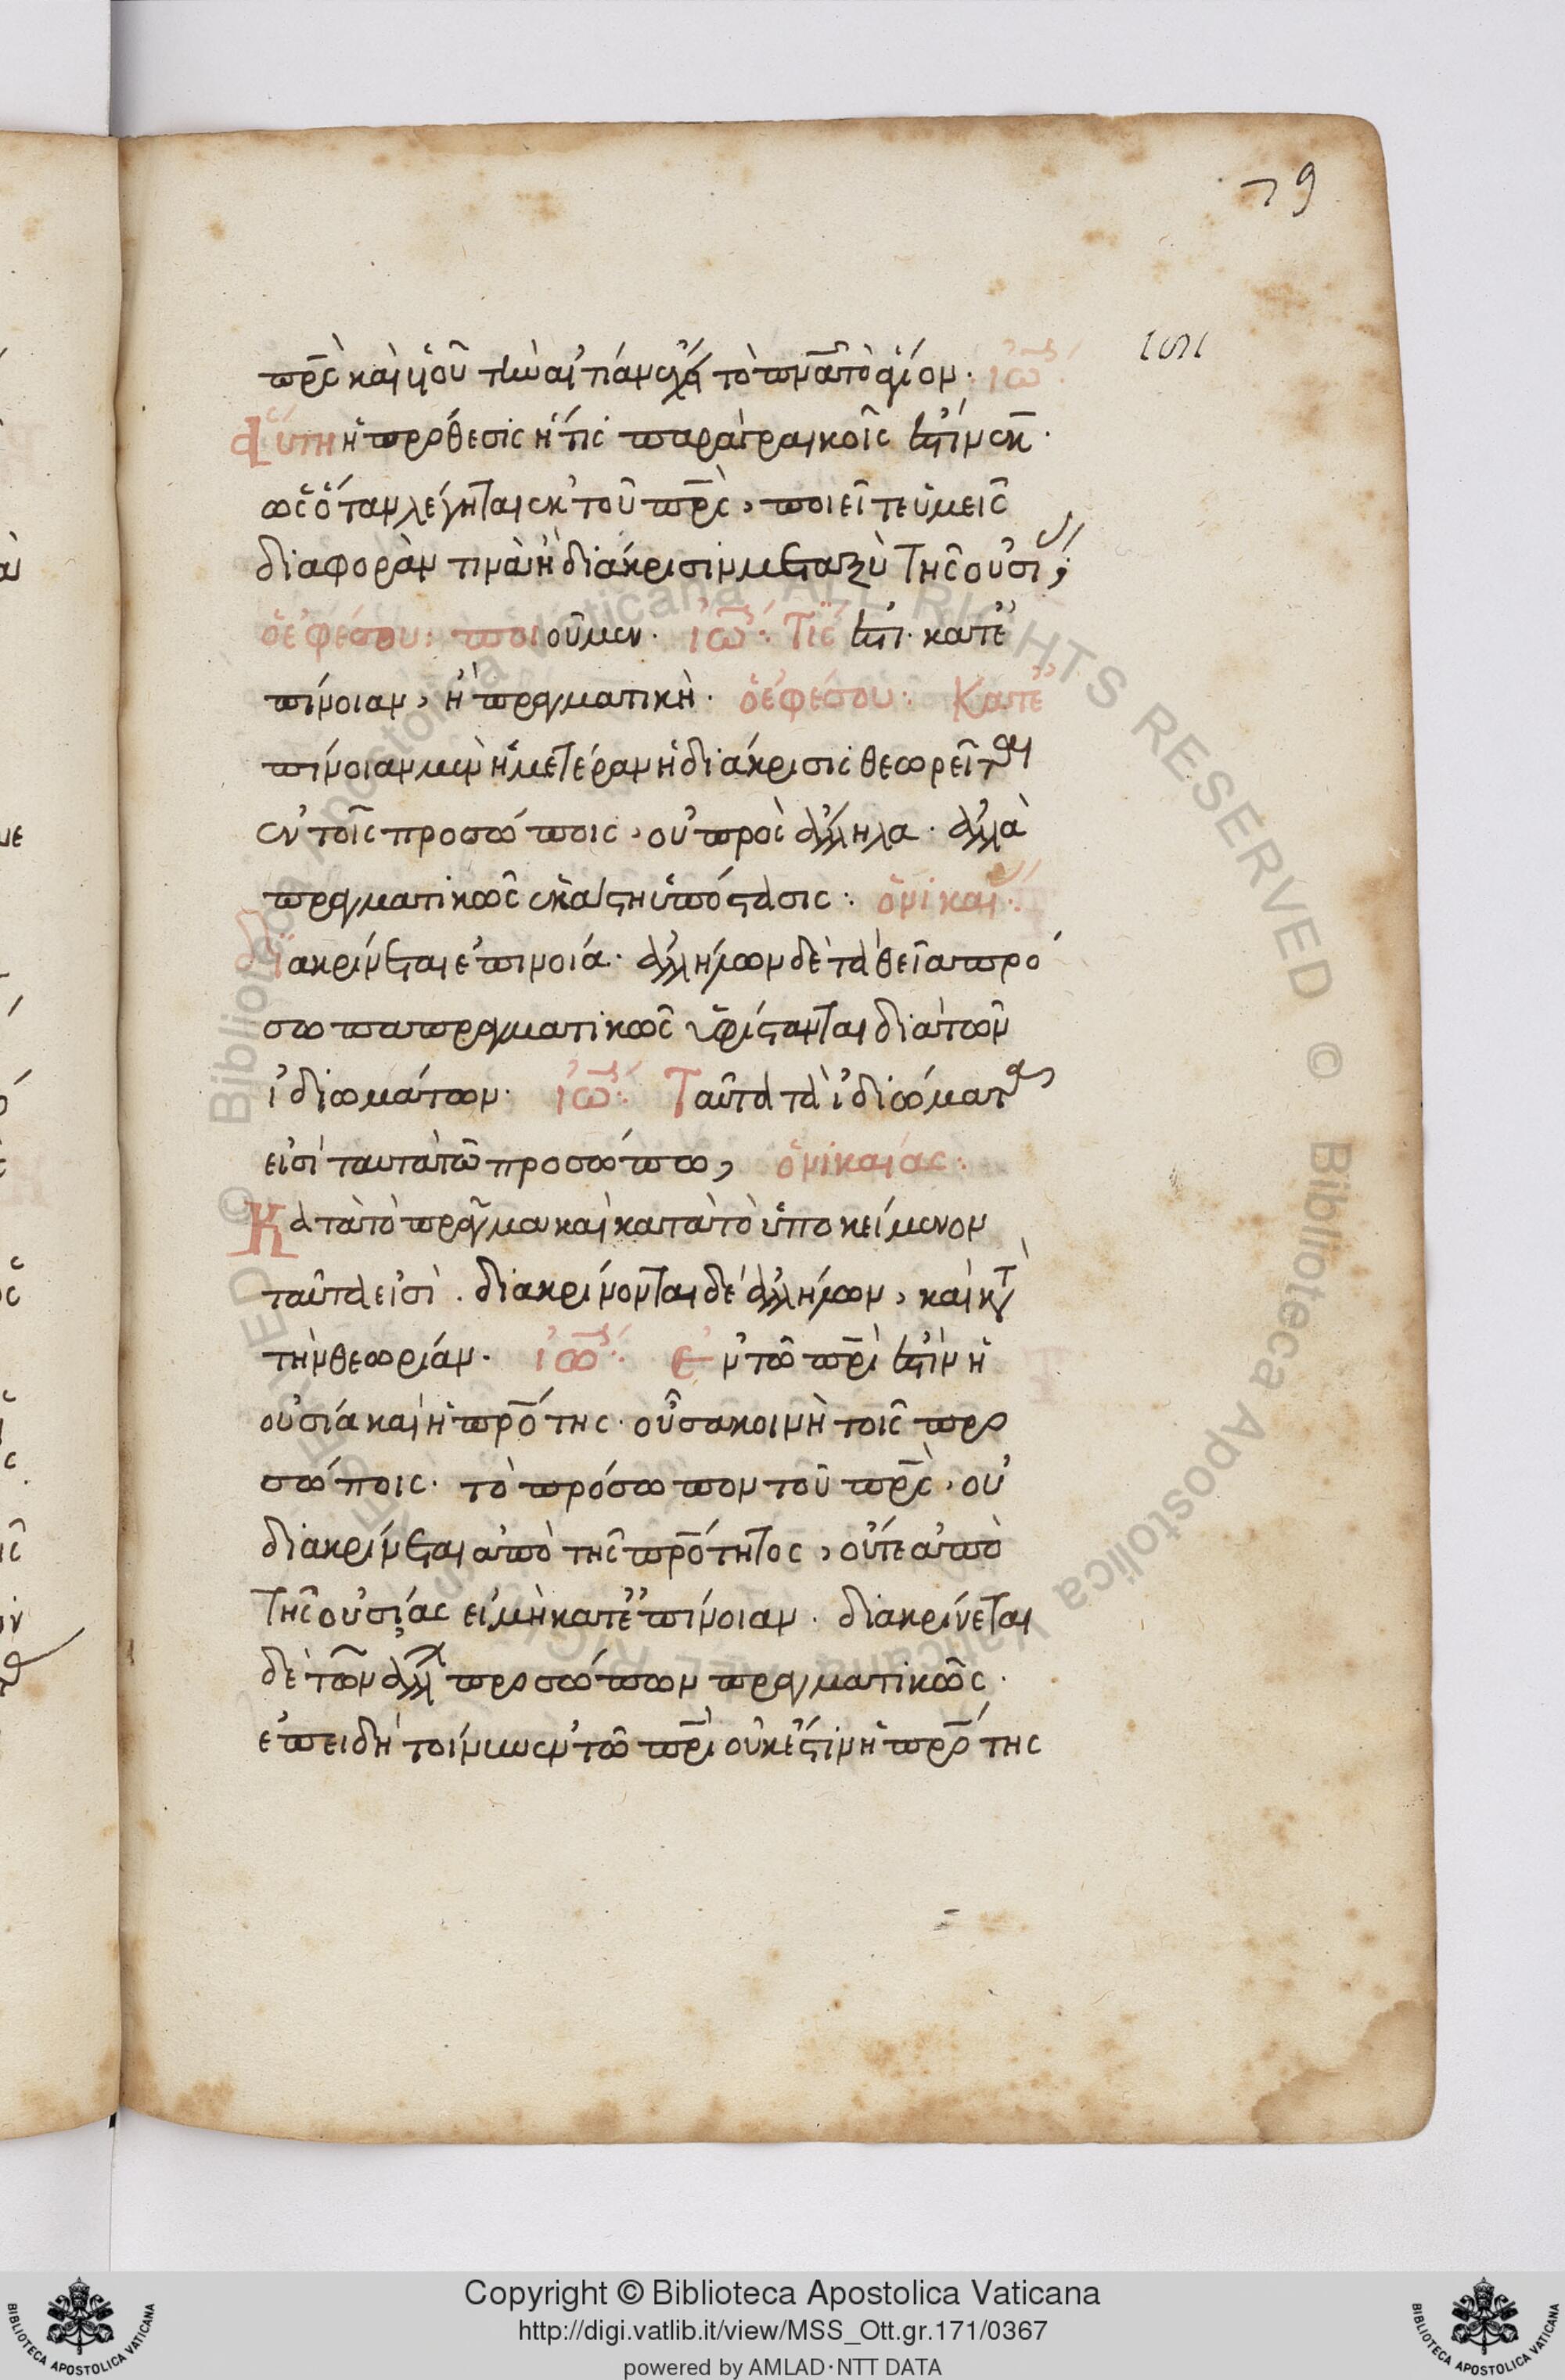 79
πρ̅ς καὶ υἱοῦ τὴν αἰτίαν ἔχει τὸ πν̅α τὸ ἅγιον· ἰω̅:
αὕτη ἡ πρόθεσις ἥτις παρὰ γραικοῖς ἐστὶν ἐκ·
ὡς ὅταν λέγηται ἐκ τοῦ πρ̅ς, ποιεῖτε ὑμεῖς
διαφορὰν τινὰ ἢ διάκρισιν μεταξὺ τῆς οὐσί;
ὁ ἐφέσου: ποιοῦμεν· ἰω̅: Τίς ἐστι· κατ' ἐ
πίνοιαν, ἢ πραγματικὴ· ὁ ἐφέσου: Κατ' ἐ
πίνοιαν μὲν ἡμετέραν ἡ διάκρισις θεωρεῖται
ἐν τοῖς προσώποις, οὐ πρὸς ἄλληλα· ἀλλὰ
πραγματικῶς ἑκάστη ὑπόστασις: ὁ νικαί:
Διακρίνεται ἐπινοία· ἀλλήλων δὲ τὰ θεῖα πρό
σωπα πραγματικῶς ὑφίστανται διὰ τῶν
ἰδιωμάτων· ἰω̅: Ταῦτα τὰ ἰδιώματα
εἰσὶ ταυτὰ τῶ προσώπω, ὁ νικαίας:
Κατὰ τὸ πρᾶγμα καὶ κατὰ τὸ ὑποκείμενον
ταῦτα εἰσὶ. διακρίνονται δὲ ἀλλήλων, καὶ κτ̀
τὴν θεωρίαν· ἰω̅: Ἐν τῶ πρ̅ὶ ἐστὶν ἡ
οὐσία καὶ ἡ πρ̅ότης· οὖσα κοινὴ τοῖς προ
σώποις· τὸ πρόσωπον τοῦ πρ̅ς, οὐ
διακρίνεται ἀπὸ τῆς πρ̅ότητος, οὔτε ἀπὸ
τῆς οὐσίας εἰ μὴ κατ' ἐπίνοιαν. διακρίνεται
δὲ τῶν ἄλλ προσώπων πραγματικῶς.
ἐπειδὴ τοίνυν ἐν τῶ πρ̅ὶ οὐκ ἔστιν ἡ πρ̅ότης
Copyright © Biblioteca Apostolica Vaticana
http://digi.vatlib.it/view/MSS_Ott.gr.171/0367
powered by AMLAD·NTT DATA
BIBLIOTECA APOSTOLICA VATICANA
BIBLIOTECA APOSTOLICA VATICANA